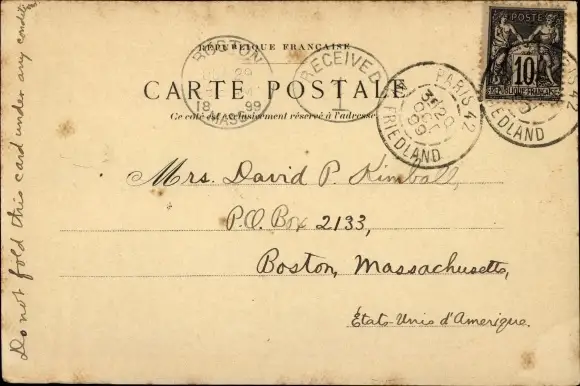 RÉPUBLIQUE FRANÇAISE
BOSTON
18 99
MASS
RECEIVED
1
PARIS 42
3E 29
OCT
99
FRIEDLAND
POSTE
10
RÉPUBLIQUE FRANÇAISE
42
EDLAND
CARTE POSTALE
Ce côté est exclusivement réservé à l'adresse
Mrs. David P. Kimball,
P.O. Box 2133,
Boston, Massachusetts,
États-Unis d'Amerique.
Do not fold this card under any condition